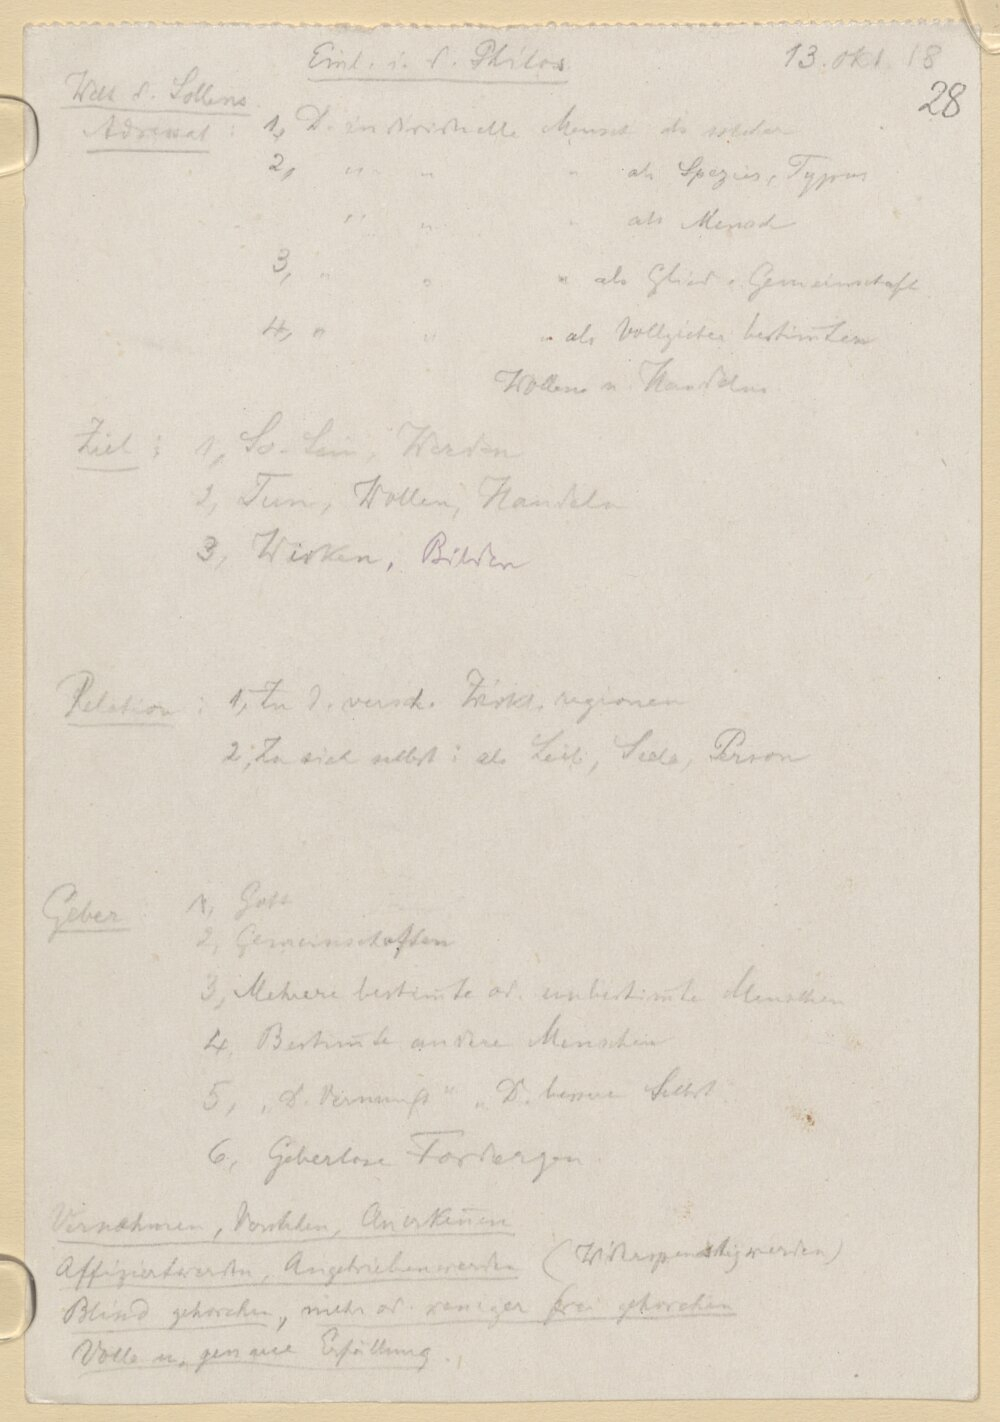 Einl. i. d. Philos 13. Okt. 18
28
Welt d. Sollens
Adressat : 1, D. individuelle Mensch als solcher
2, " " " als Spezies, Typus
" " " als Mensch
3, " " " als Glied e. Gemeinschaft
4, " " " als Vollzieher bestim̄ten
Wollens u. Handelns
Ziel : 1, So-Sein, Werden
2, Tun, Wollen, Handeln
3, Wirken, Bilden
Relation : 1, Zu d. versch. Wirkl. regionen
2, Zu sich selbst : als Leib, Seele, Person
Geber : 1, Gott
2, Gemeinschaften
3, Mehrere bestim̄te od. unbestim̄te Menschen
4, Bestim̄te andere Menschen
5, „D. Vernunft" „D. bessere Selbst
6, Geberlose Fordergen
Vernehmen, Verstehen, Anerken̄en
Affiziertwerden, Angetriebenwerden (Widerspenstigwerden)
Blind gehorchen, mehr od. weniger frei gehorchen
Volle u. genaue Erfüllung.